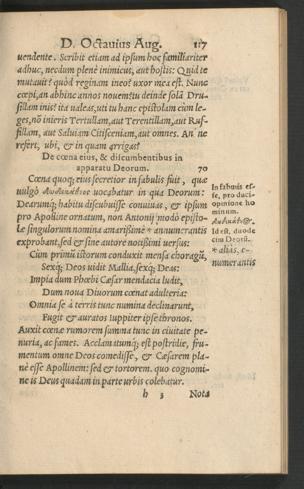 D. Octauius Aug. 117
uendente. Scribit etiam ad ipsum hoc familiariter
adhuc, necdum plenè inimicus, aut hostis: Quid te
mutauit? quòd reginam ineo? uxor mea est. Nunc
cœpi, an abhinc annos nouem? tu deinde solā Dru-
sillam inis? ita ualeas, uti tu hanc epistolam cùm le-
ges, nō inieris Tertullam, aut Terentillam, aut Ruf-
fillam, aut Saluiam Citisceniam, aut omnes. An ne
refert, ubi, & in quam arrigas?
De cœna eius, & discumbentibus in
apparatu Deorum. 70
Cœna quoq; eius secretior in fabulis fuit, quæ
uulgò Δωδεκάθεος uocabatur in qua Deorum:
Dearumq; habitu discubuisse conuiuas, & ipsum
pro Apolline ornatum, non Antonij modò episto-
læ singulorum nomina amarißimè * annumerantis
exprobant, sed & sine autore notißimi uersus:
Cùm primùm istorum conduxit mensa choragū,
Sexq; Deos uidit Mallia, sexq; Deas:
Impia dum Phœbi Cæsar mendacia ludit,
Dum noua Diuorum cœnat adulteria:
Omnia se à terris tunc numina declinarunt,
Fugit & auratos Iuppiter ipse thronos.
Auxit cœnæ rumorem summa tunc in ciuitate pe-
nuria, ac fames. Acclamatumq; est postridie, fru-
mentum omne Deos comedisse, & Cæsarem pla-
nè esse Apollinem: sed & tortorem. quo cognomi-
ne is Deus quadam in parte urbis colebatur.
h 3 Nota
In fabulis es-
se, pro duci-
opinione ho
minum.
Id est, duode
cim Deorū.
* aliâs, e-
numerantis